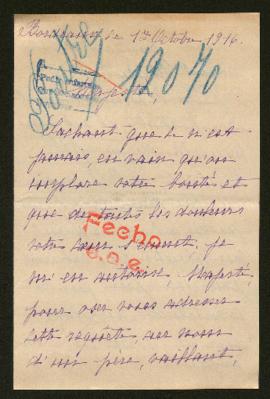 le 1er Octobre 1916.
12070
Sachant que ce n'est
jamais en vain qu'on
implore votre bonté et
que de toutes les douleurs
votre s'émeut, je
m'en autorise, Majesté,
pour oser vous adresser
cette requête au nom
d'un père, vaillant,
Fecho